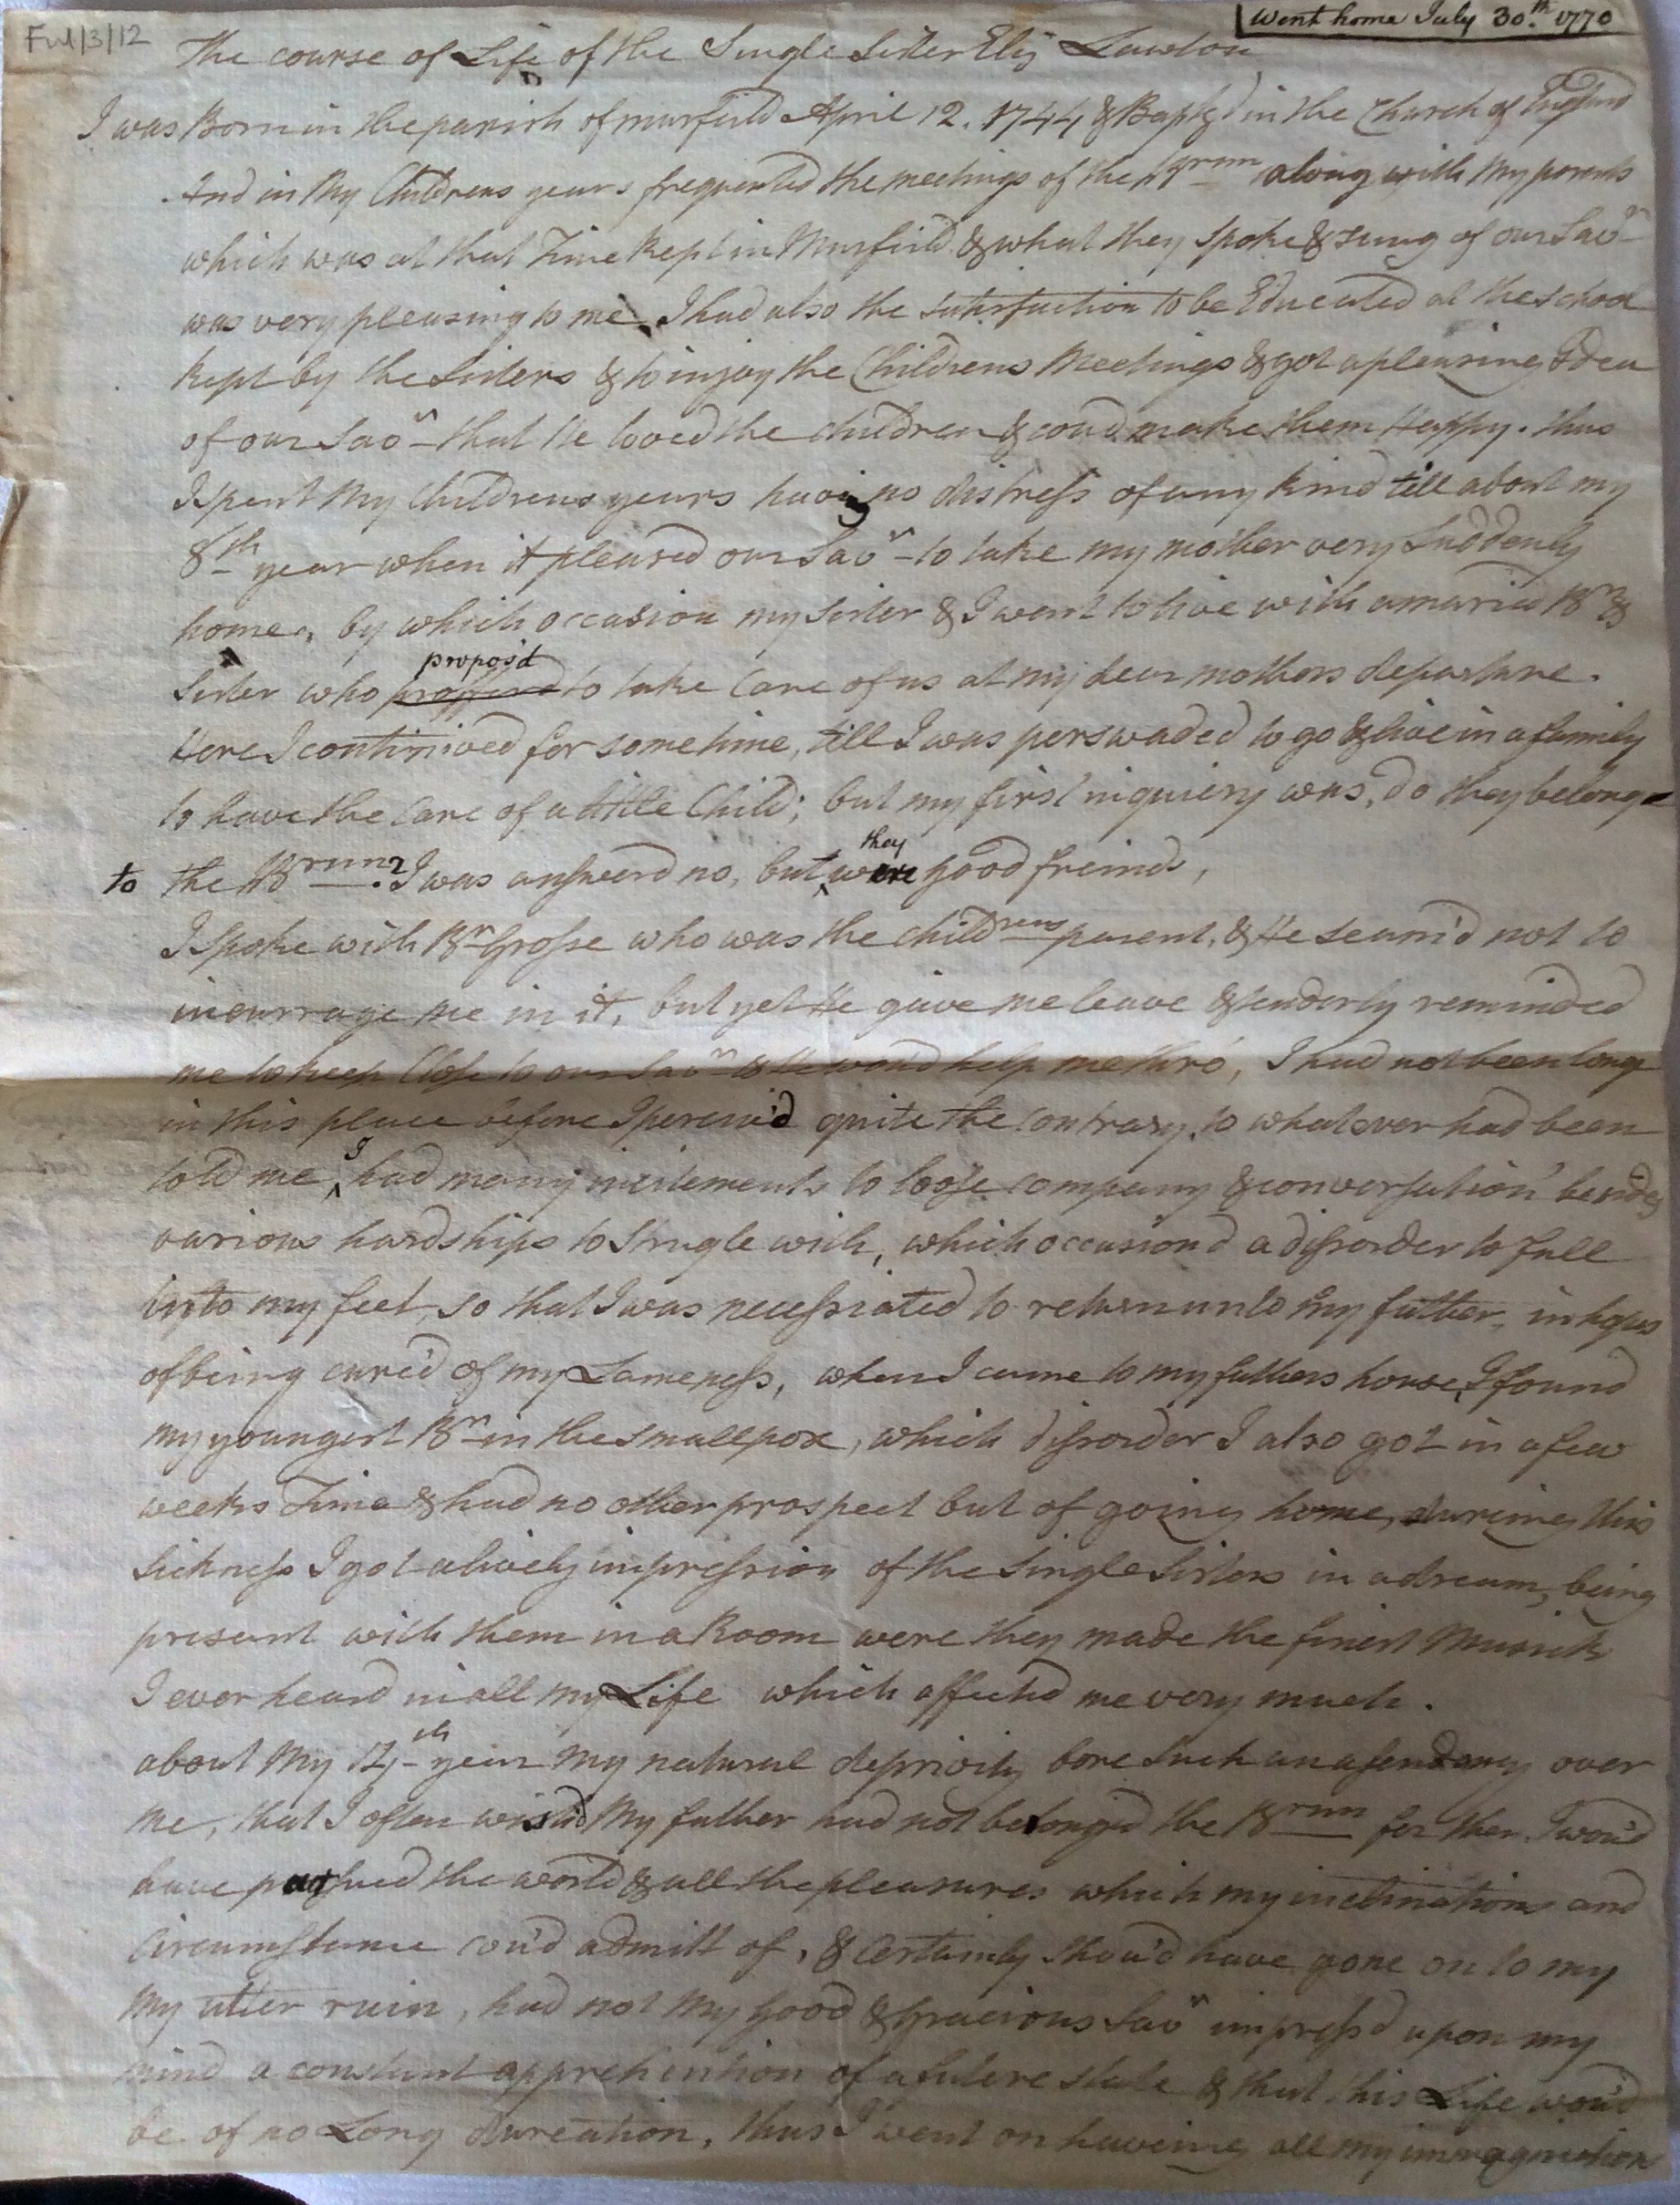 Ful/3/12
Went home July 30.th 1770
The course of Life of the Single Sister Eliz Lawton
I was Born in the parish of murfield April 12. 1744 & Baptz'd in the Church of England
And in My Childrens years frequented the meetings of the Brnn along with My parents
which was at that Time kept in Murfield & what they spoke & sung of our Savr
was very pleasing to me, I had also the satisfaction to be Educated at the school
kept by the Sisters & to injoy the Childrens Meetings & got a pleasing Idea
of our Savr that He loved the children & coud make them Happy. thus
I spent My Childrens years having no distress of any kind till about my
8th year when it pleased our Savr to take my mother very Suddenly
home, by which occasion my sister & I went to live with a maried Br &
Sister who proffered propos'd to take Care of us at my dear mothers departure.
Here I continived for some time, till I was perswaded to go & live in a family
to have the Care of a little Child; but my first inquiery was, do they belong
to the Brnn? I was answerd no, but they were good freinds,
I spoke with Br Grosse who was the childrens parent, & He seam'd not to
incurrage me in it, but yet He gave me leave & tenderly reminded
me to keep Close to our Savr & He wou'd help me thro', I had not been long
in this place before I perciev'd quite the Contrary to what ever had been
told me, I had many incitements to loose company & conversation besides
various hardships to Strugle with, which occasion'd a disorder to fall
into my feet, so that I was necessiated to return unto my father, in hopes
of being cured of my Lameness, when I came to my fathers house, I found
my youngest Br in the smallpox, which dissorder I also got in a few
weeks Time & had no other prospect but of going home, dureing this
sickness I got a lively impression of the single Sisters in a dream, being
present with them in a Room were they made the finest Musick
I ever heard in all my Life which affected me very much.
about My 12th year My natural deprivity bore such an asendancy over
me, that I often wishd My father had not belonged the Brnn for then I wou'd
have pushued the world & all the pleasures which my inclinations and
Circumstance cou'd admitt of, & Certainly shou'd have gone on to my
My utter ruin, had not My Good & Gracious Savr impress'd upon my
mind a constant apprehention of a future state & that this Life wou'd
be of no Long dureation, thus I went on haveing all my immagination